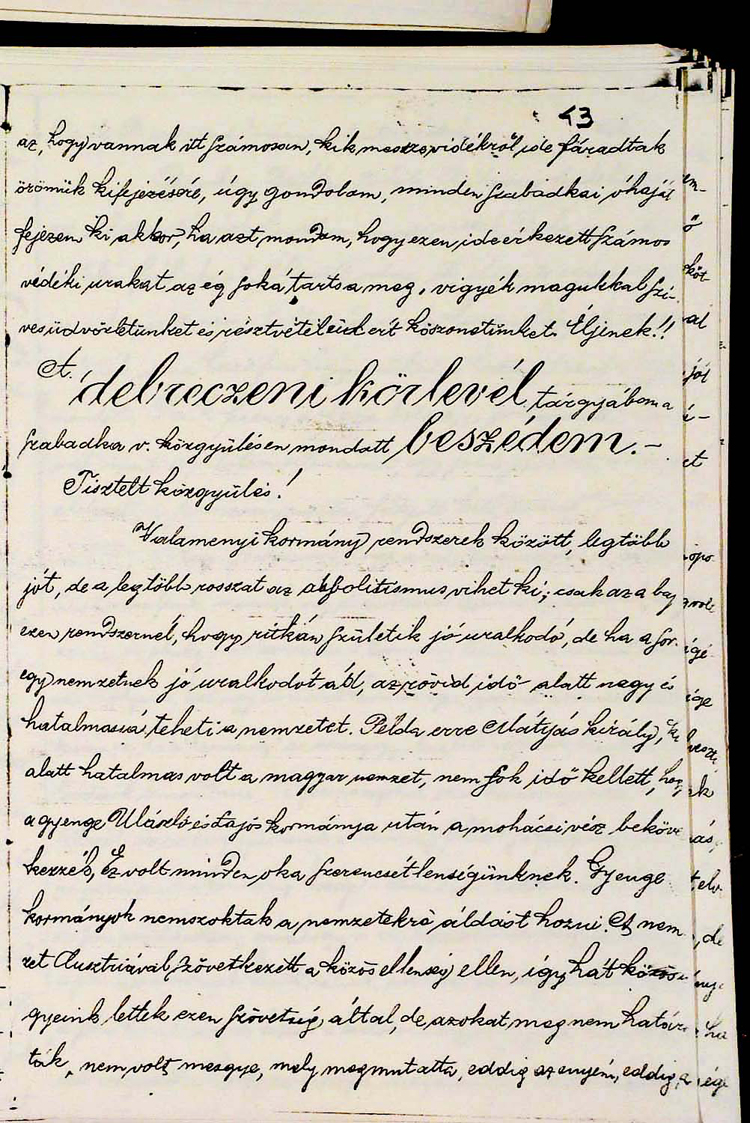 43
az, hogy vannak itt számosan, kik messze vidékről ide fáradtak
örömük kifejezésére, úgy gondolom, minden szabadkai óhaját
fejezem ki akkor, ha azt mondom, hogy ezen ide érkezett számos
vidéki urakat az ég soká tartsa meg, vigyék magukkal szi-
ves üdvözletünket és részvételeükért köszönetünket. Éljenek!!
A debreczeni körlevél tárgyában a
szabadka v. közgyülésen mondatt beszédem.-
Tisztelt közgyülés!
Valamenyi kormány rendszerek között, legtöbb
jót, de a legtöbb rosszat az absolitismus vihet ki; csak az a baj
ezen rendszernél, hogy ritkán születik jó uralkodó, de ha a sor
egy nemzetnek jó uralkodót ád, az rövid idő alatt nagy és
hatalmassá teheti a nemzetet. Példa erre Mátyás király, ki
alatt hatalmas volt a magyar nemzet, nem sok idő kellett, hogy
a gyenge Ulászló és Lajos kormánya után a mohácsi vész beköve
kezzék, Ez volt minden oka szerencsétlenségünknek. Gyenge
kormányok nem szoktak a nemzetekre áldást hozni. A nem
zet Austriával szövetkezett a közös ellenség ellen, így hát közös
gyeink lettek ezen szövetség által, de azokat meg nem határ
ták, nem volt mesgye, mely megmutatta, eddig az enyém, eddig a